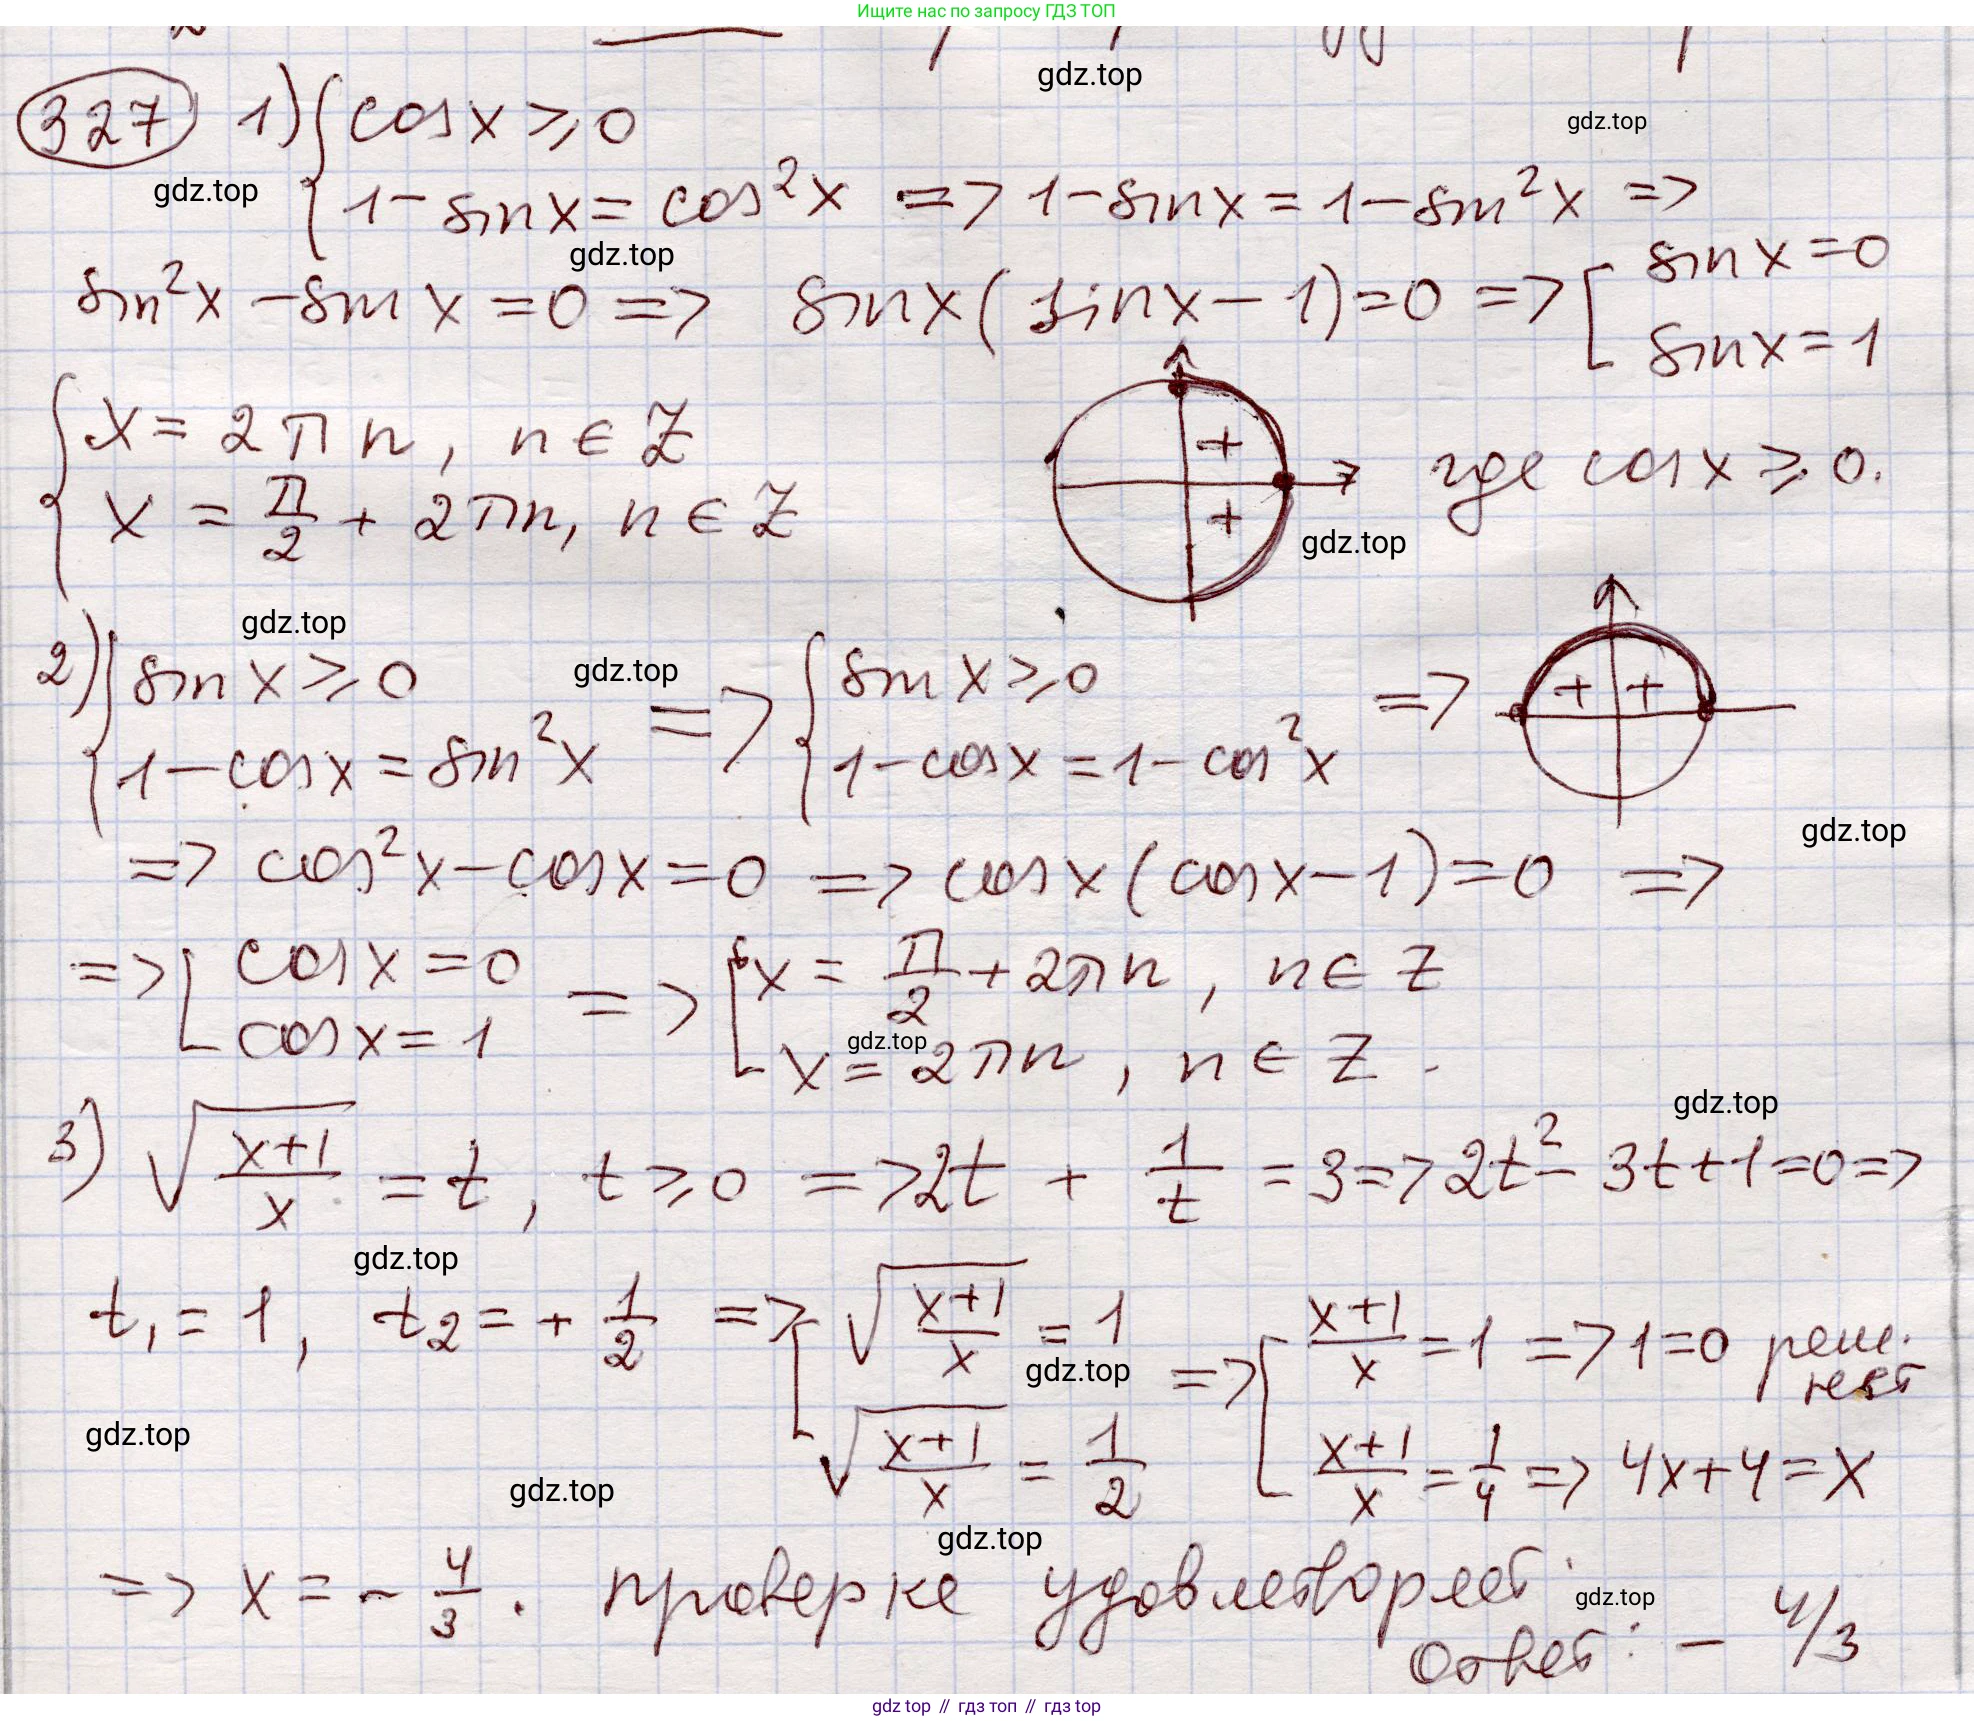 Ищите нас по запросу ГДЗ ТОП
gdz.top
327 1) { cos x ⩾ 0
gdz.top
gdz.top
1 - sin x = cos²x => 1 - sin x = 1 - sin²x =>
gdz.top
sin²x - sin x = 0 => sin x (sin x - 1) = 0 => [ sin x = 0
sin x = 1
{ x = 2πn, n ∈ Z
x = π/2 + 2πn, n ∈ Z
+
+
где cos x ⩾ 0.
gdz.top
gdz.top
2) { sin x ⩾ 0
gdz.top
1 - cos x = sin²x
=> { sin x ⩾ 0
1 - cos x = 1 - cos²x
=>
+ +
gdz.top
=> cos²x - cos x = 0 => cos x (cos x - 1) = 0 =>
=> [ cos x = 0
cos x = 1
=> [ x = π/2 + 2πn, n ∈ Z
gdz.top
x = 2πn, n ∈ Z.
gdz.top
3) √((x+1)/x) = t, t ⩾ 0 => 2t + 1/t = 3 => 2t² - 3t + 1 = 0 =>
gdz.top
t₁ = 1, t₂ = + 1/2 => [ √((x+1)/x) = 1
gdz.top
√((x+1)/x) = 1/2
=> [ (x+1)/x = 1 => 1 = 0 реш. нет
(x+1)/x = 1/4 => 4x + 4 = x
gdz.top
gdz.top
gdz.top
=> x = - 4/3. проверке удовлетворяет.
gdz.top
Ответ: - 4/3
gdz top // гдз топ // гдз top